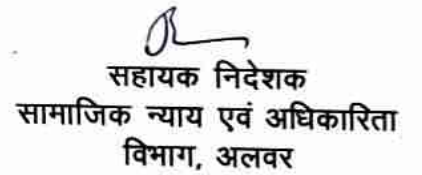 सहायक निदेशक
सामाजिक न्याय एवं अधिकारिता
विभाग, अलवर